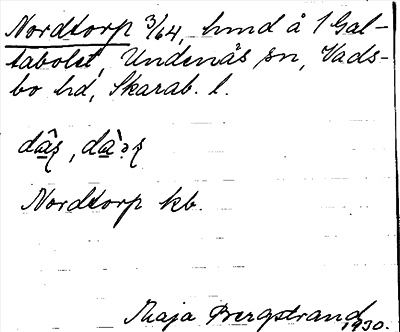 Nordtorp 3/64, hmd å 1 Gal-
tabolet, Undenäs sn, Vads-
bo hd, Skarab. l.
Nordtorp kb.
Maja Bergstrand
1930.